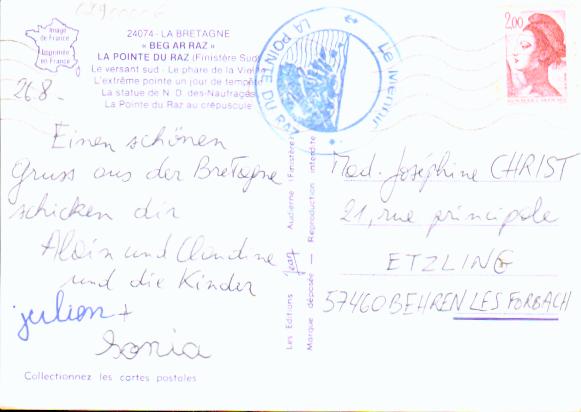 Image
de France
Imprimée
en France
24074 - LA BRETAGNE
« BEG AR RAZ »
LA POINTE DU RAZ (Finistère Sud)
Le versant sud - Le phare de la Vieille
L'extrême pointe un jour de tempête
La statue de N. D. des-Naufragés
La Pointe du Raz au crépuscule
LA POINTE DU RAZ
Le Menhir
2,00
26.8.
Einen schönen
Gruss aus der Bretagne
schicken dir
Alain und Claudine
und die Kinder
julien +
Sonia
Collectionnez les cartes postales
Les Editions Jean Audierne (Finistère)
Marque déposée - Reproduction interdite
Mad. Joséphine CHRIST
21, rue principale
ETZLING
57460 BEHREN LES FORBACH